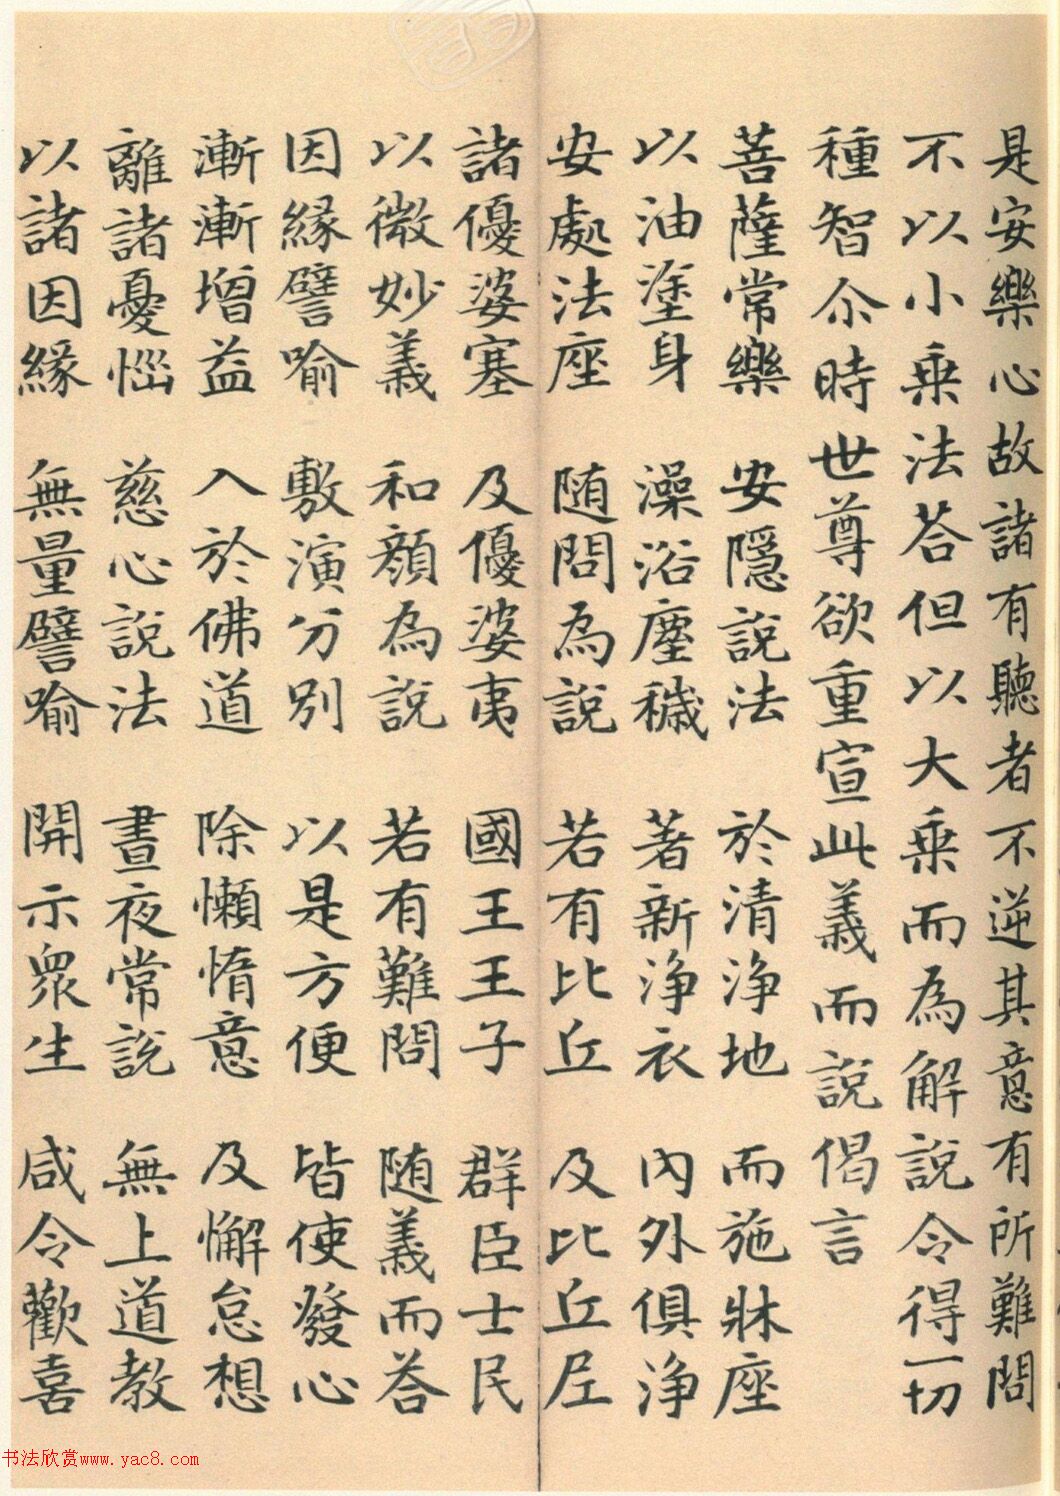 是安樂心故諸有聽者不逆其意有所難問
不以小乘法荅但以大乘而為解說令得一切
種智尒時世尊欲重宣此義而說偈言
菩薩常樂 安隱說法 於清淨地 而施牀座
以油塗身 澡浴塵穢 著新淨衣 內外俱淨
安處法座 随問為說 若有比丘 及比丘尼
諸優婆塞 及優婆夷 國王王子 群臣士民
以微妙義 和顏為說 若有難問 随義而荅
因緣譬喻 敷演分別 以是方便 皆使發心
漸漸增益 入於佛道 除懶惰意 及懈怠想
離諸憂惱 慈心說法 晝夜常說 無上道教
以諸因緣 無量譬喻 開示眾生 咸令歡喜
书法欣赏www.yac8.com